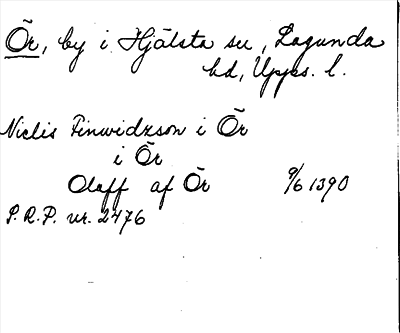 Ör, by i Hjälsta sn, Lagunda
hd, Upps. l.
Niclis Finwidzson i Ör
i Ör
Olaff af Ör 9/6 1390
P.R.P. nr. 2476